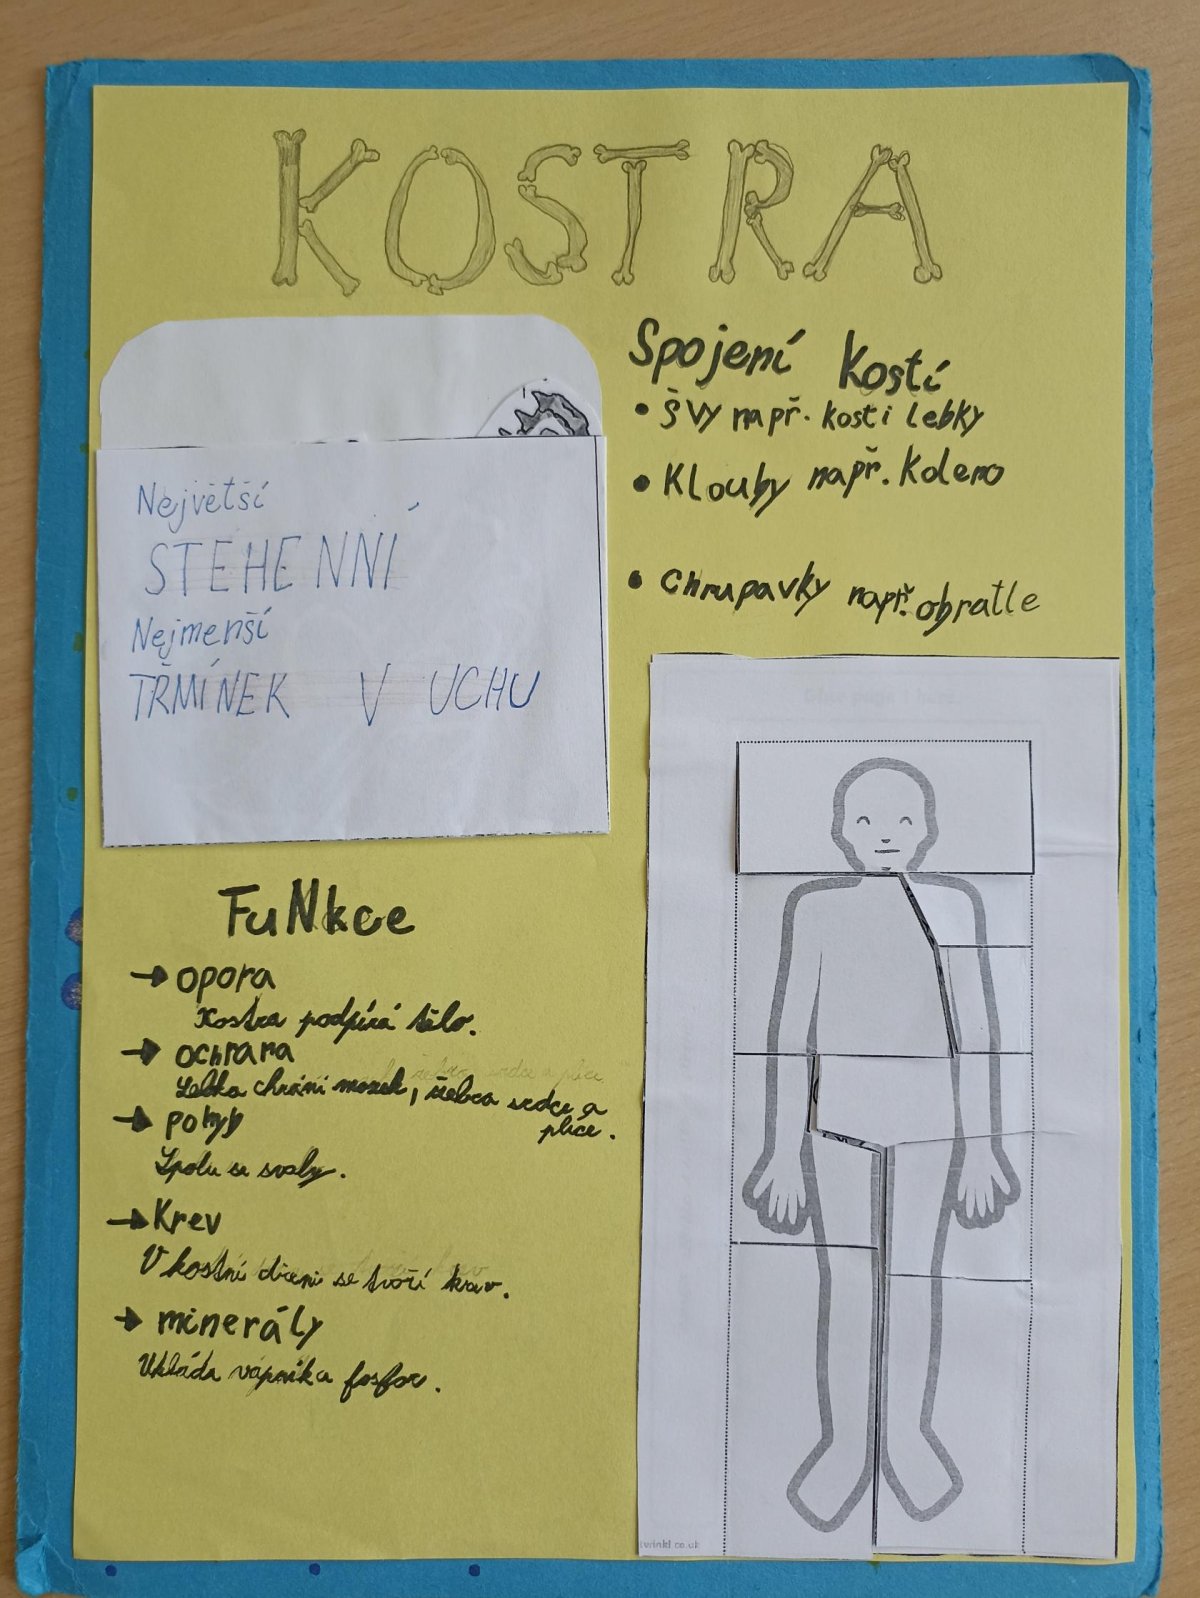 KOSTRA
Největší
STEHENNÍ
Nejmenší
TŘMÍNEK V UCHU
Spojení kostí
• ŠVY např. kosti lebky
• Klouby např. koleno
• chrupavky např. obratle
FuNkce
→ opora
Kostra podpírá tělo.
→ ochrana
Lebka chrání mozek, žebra srdce a
plíce.
→ pohyb
Spolu se svaly.
→ Krev
V kostní dřeni se tvoří krev.
→ minerály
Ukládá vápník a fosfor.
twinkl.co.uk